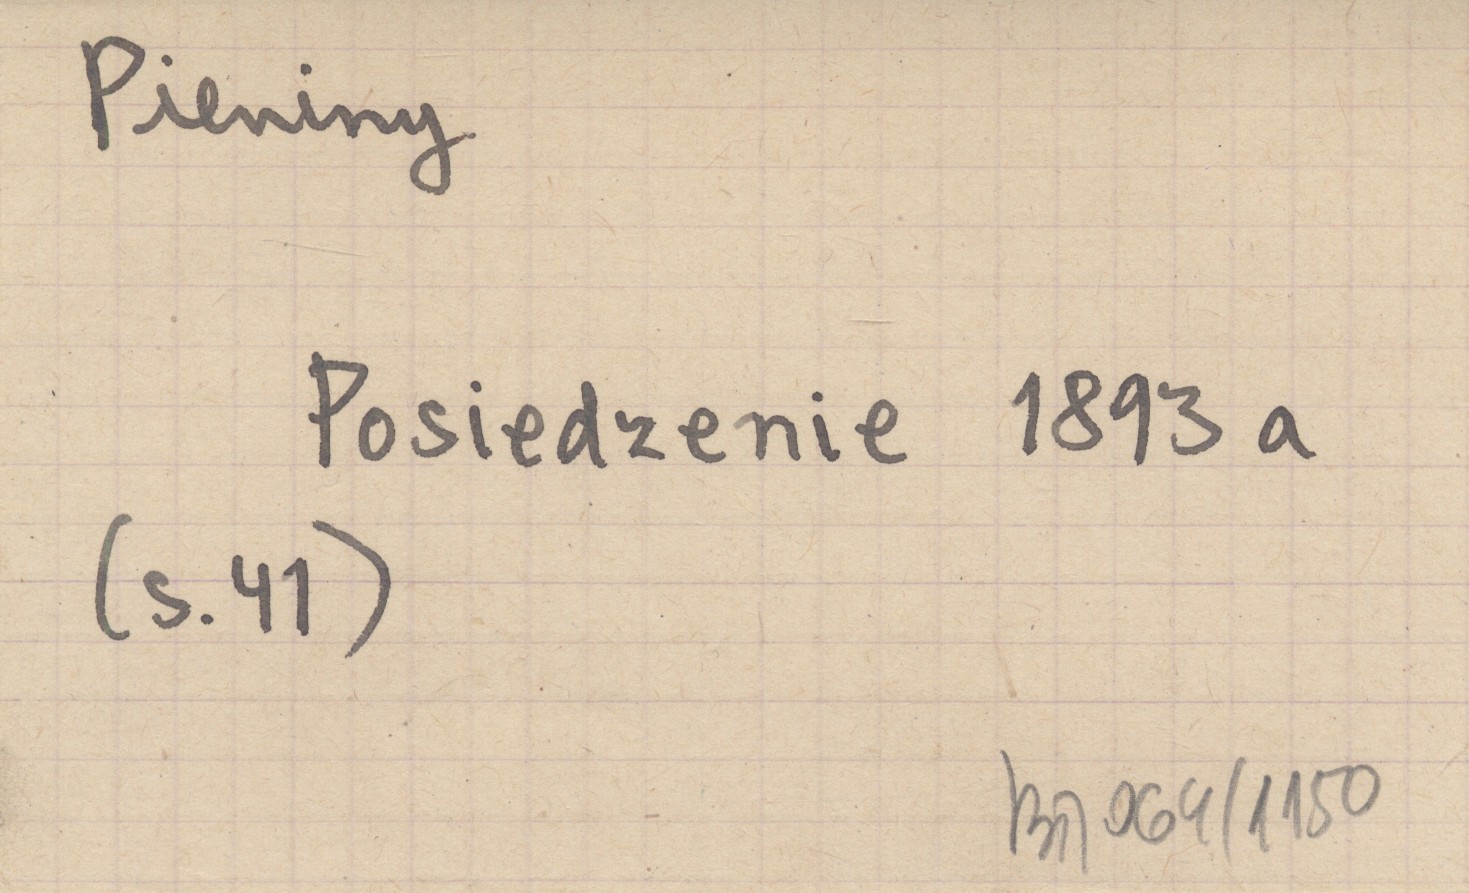 Pieniny
Posiedzenie 1893 a
(s. 41)
064/1150